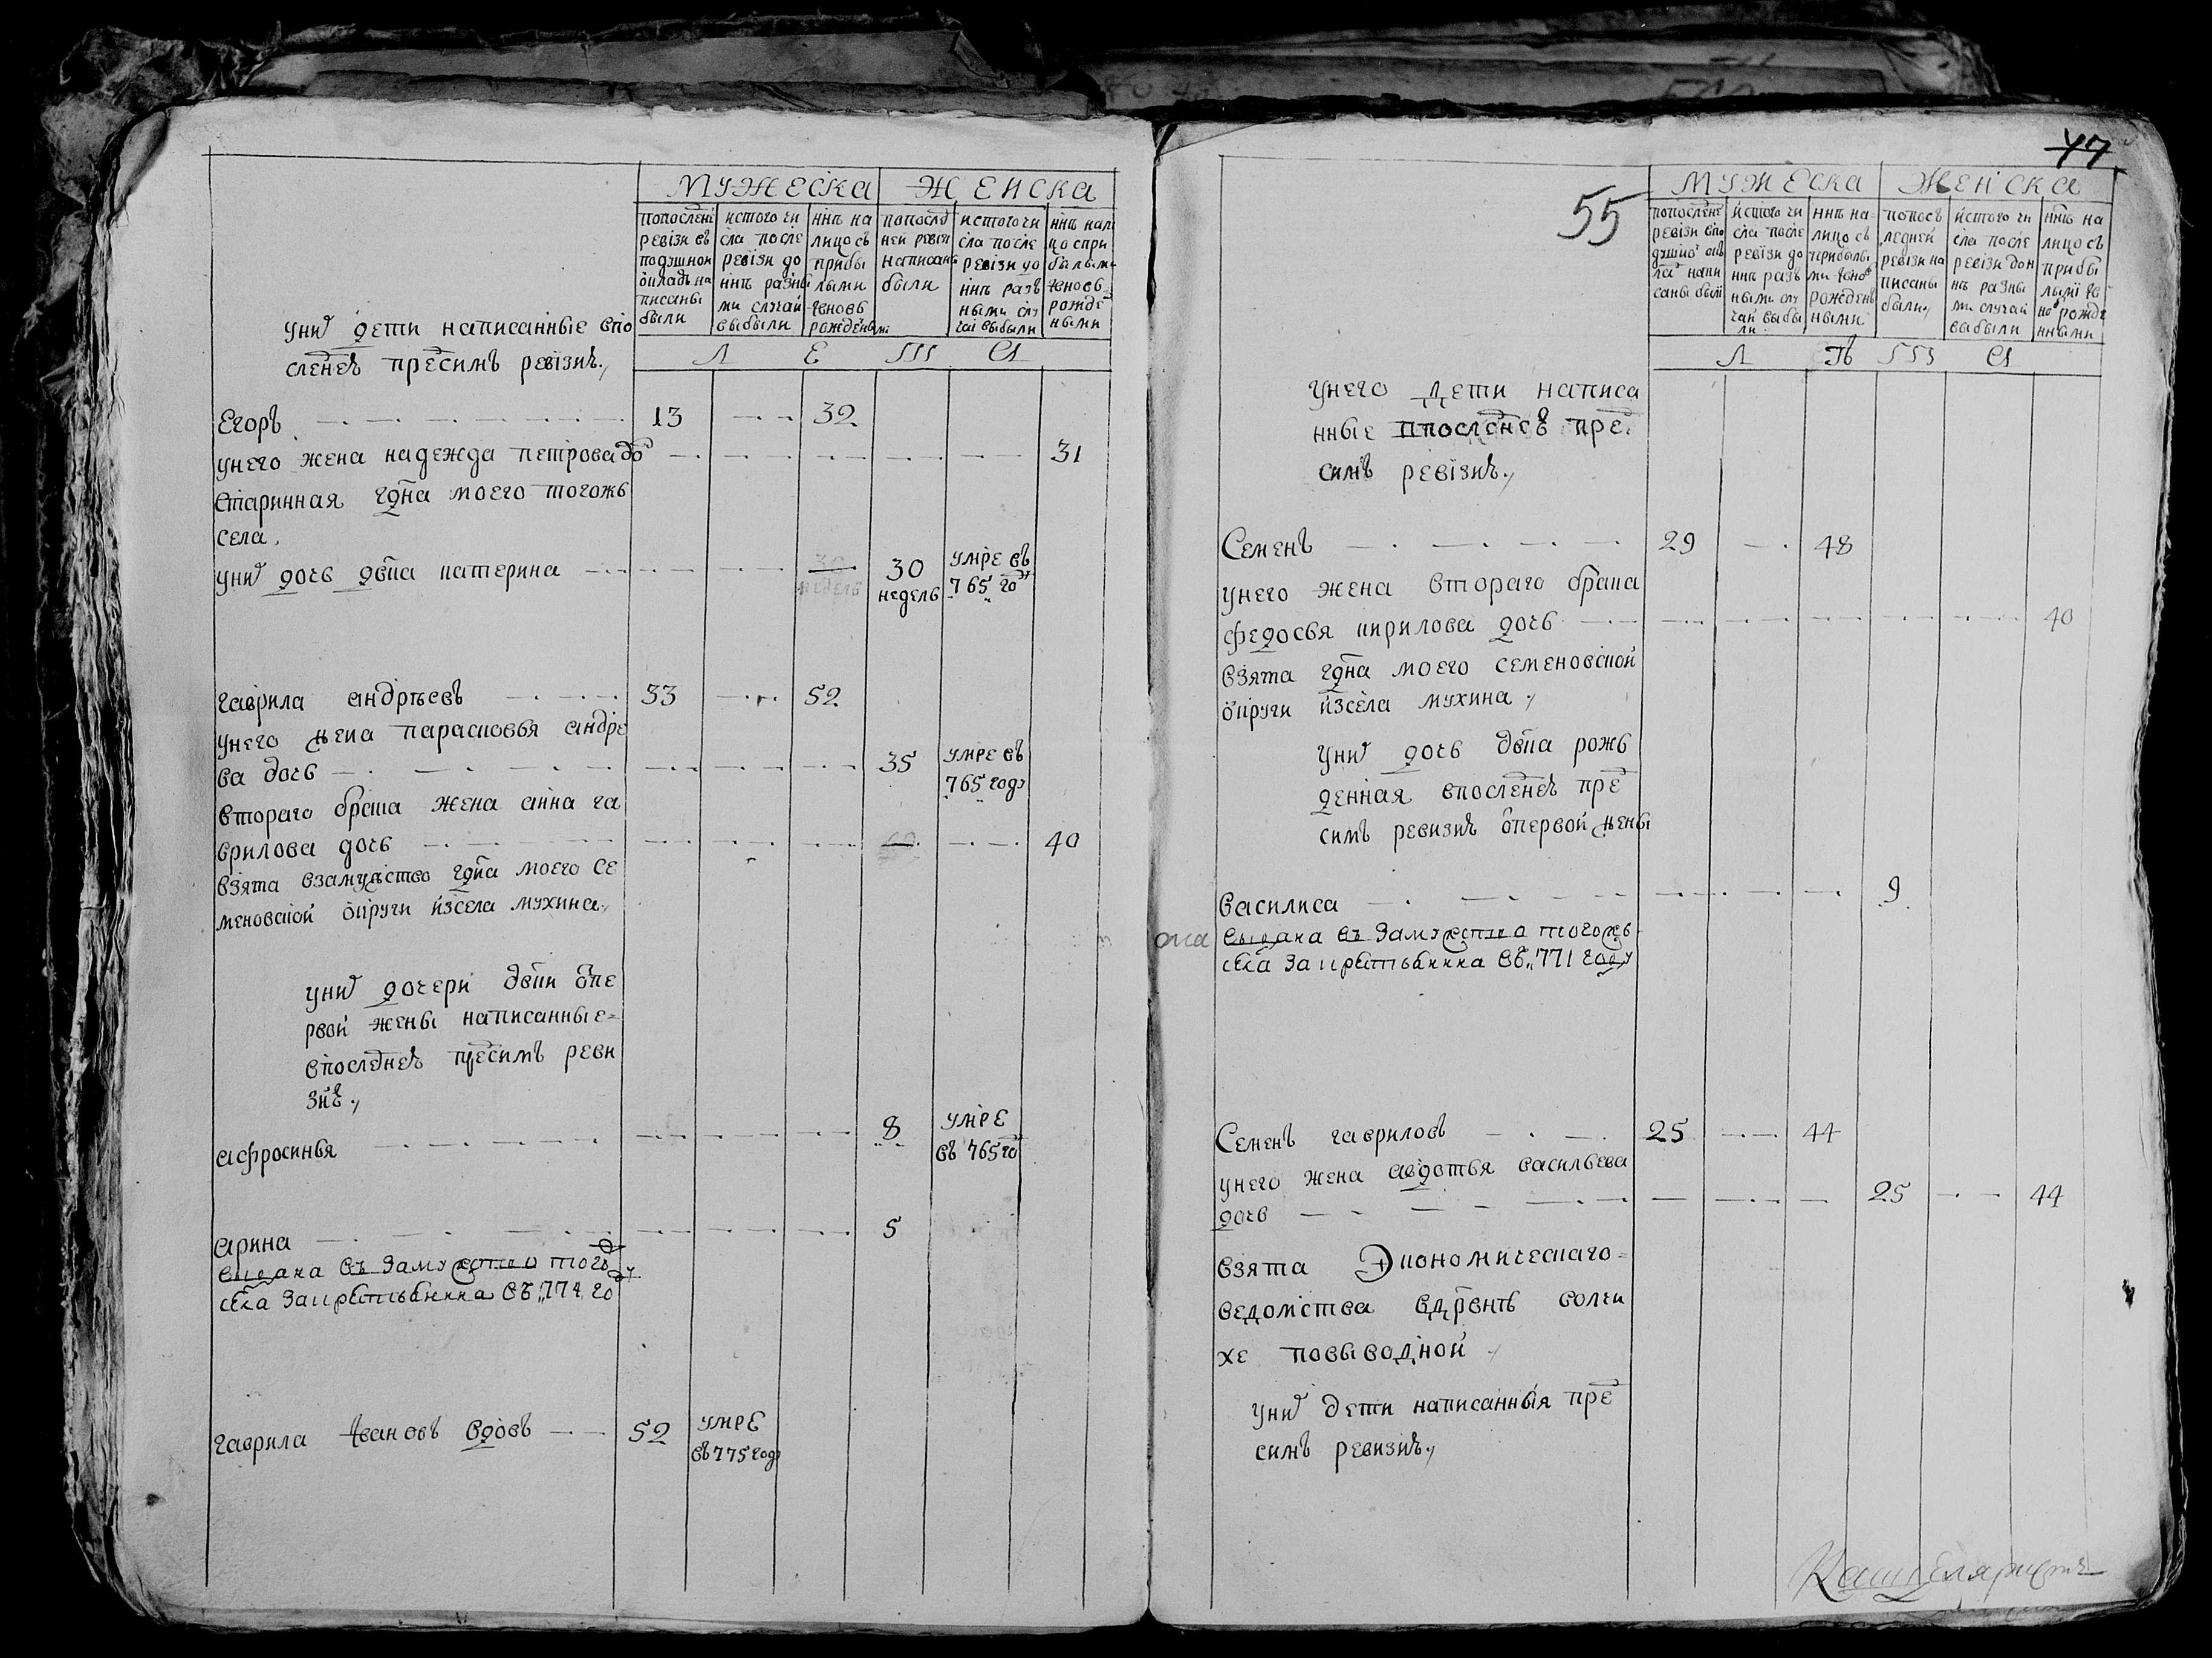 мужеска женска
попослене ревизи въ подушной окладъ написаны были
истого числа после ревизи до ннъ разными случаи выбыли
ннъ на лицо съ прибылыми ивновь рожденыи
попослед ней ревизи написаны были
истого числа после ревизи до ннъ разъ ными слу чаи выбыли
ннъ нали цо спри былыми ивновь рожде ными
л е т а
уних дети написанные впо
сленеѣ пресимъ ревизиѣ
Егоръ 13 32
унего жена надежда петрова до 31
старинная гдна моего тогожь
села
уних дочь двка катерина 30 недель умре въ 765 го
гаврила андрѣевъ 33 52
унего жена парасковья андре
ва дочь 35 умре въ 765 году
втораго брака жена анна га
врилова дочь 40
взята взамужство гдна моего се
меновской округи изсела мухина
уних дочери двки опе
рвой жены написанные
впоследнеѣ пресимъ реви
зиѣ
афросинья 8 умре въ 765 го
арина 5
выдана въ замужство того
села за крестьянина въ 774 году
гаврила Ивановъ вдовъ 52 умре въ 775 году
47
55
мужеска женска
попослене ревизи впо душно окъ ла напи саны были
истого чи сла после ревизи до ннъ разъ ными слу чаи выбы ли
ннъ на лицо съ прибылы ми ивно рождень ными
попосъ ледней ревизи на писаны были
истого чи сла после ревизи дон нъ разны ми случаи выбыли
ннъ на лицо съ прибы лыми ив но рожде нными
л ѣ т а
унего дети написа
нные впосленеѣ пре
симъ ревизиѣ
Семенъ 29 48
унего жена втораго брака
федосья кирилова дочь 40
взята гдна моего семеновской
округи изсела мухина
уних дочь двка рожь
денная впосленеѣ пре
симъ ревизиѣ опервой жены
василиса 9
она выдана въ замужство тогожь
села за крестьянина въ 771 году
Семенъ гавриловъ 25 44
унего жена авдотья васильева
дочь 25 44
взята Экономическаго
ведомства вдрвнѣ волчи
хе повыводной
уних дети написанныя пре
симъ ревизиѣ